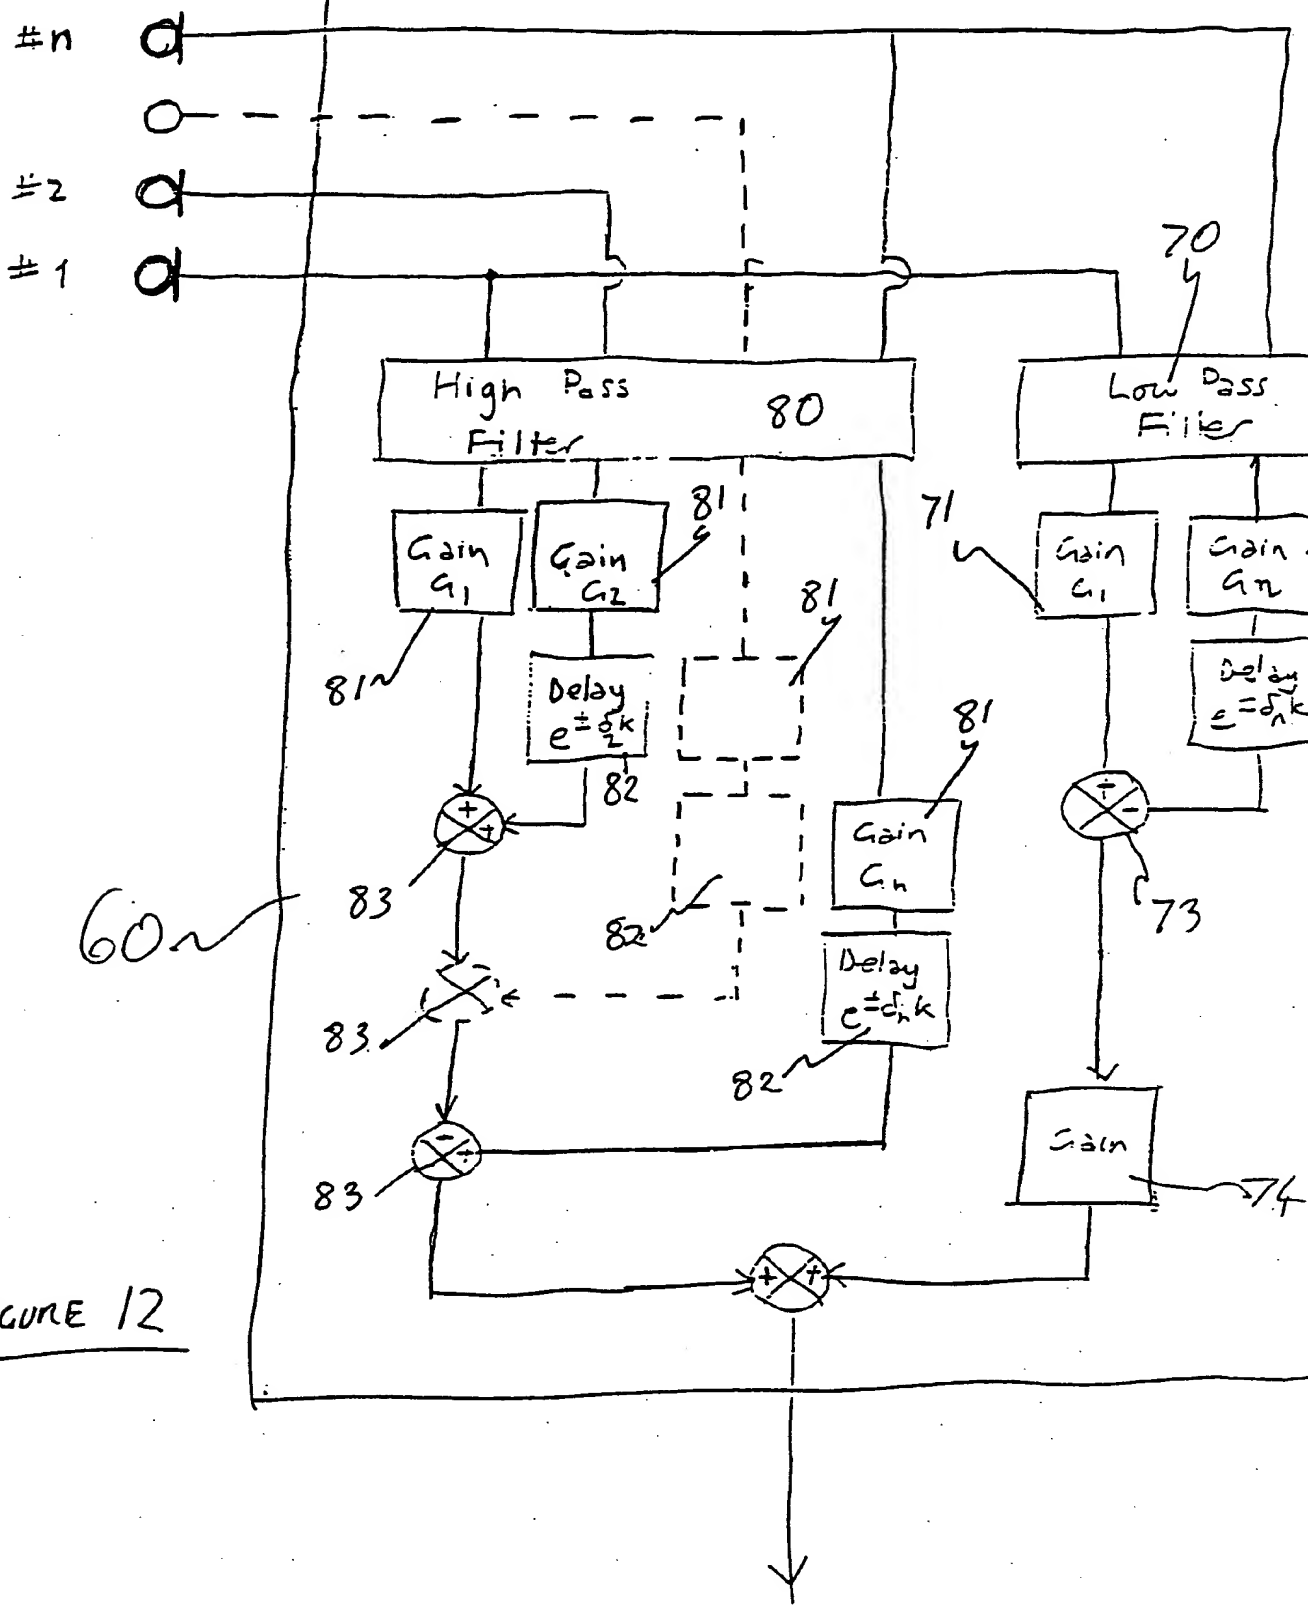 #n
#2
#1
70
High Pass
Filter
80
Low Pass
Filter
81
71
Gain
G1
Gain
G2
Gain
G1
Gain
Gn
81
81
Delay
e±δ2k
82
Delay
e±δnk
81
+
+
+
-
83
Gain
Gn
73
60
82
Delay
e±δnk
83
82
-
+
83
Gain
74
+
+
GURE 12